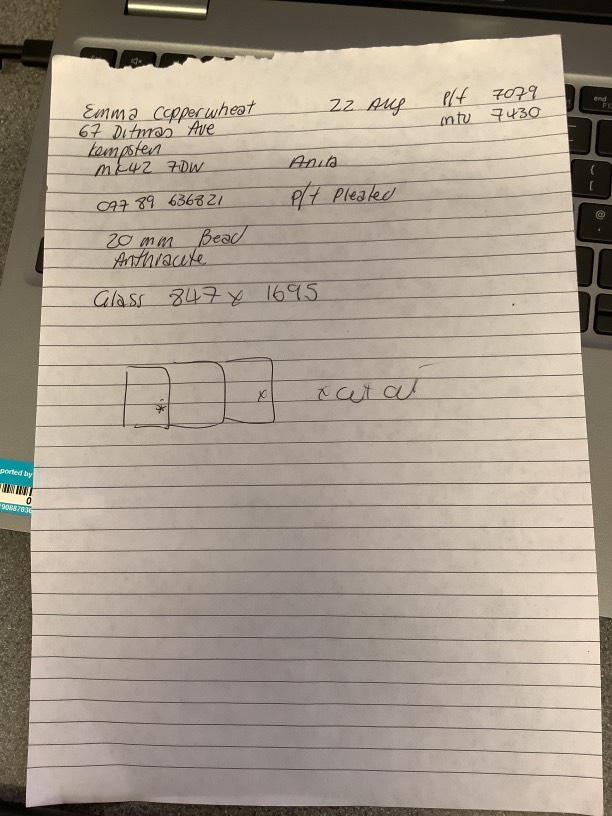 Emma Copperwheat
22 Aug
P/f 7079
67 Ditmas Ave
intu 7430
Kempsten
MK42 7DW
Anita
07789 636821
P/f Pleated
20 mm Bead
Anthracite
Glass 847 x 1695
x
x
ported by
0
end
@